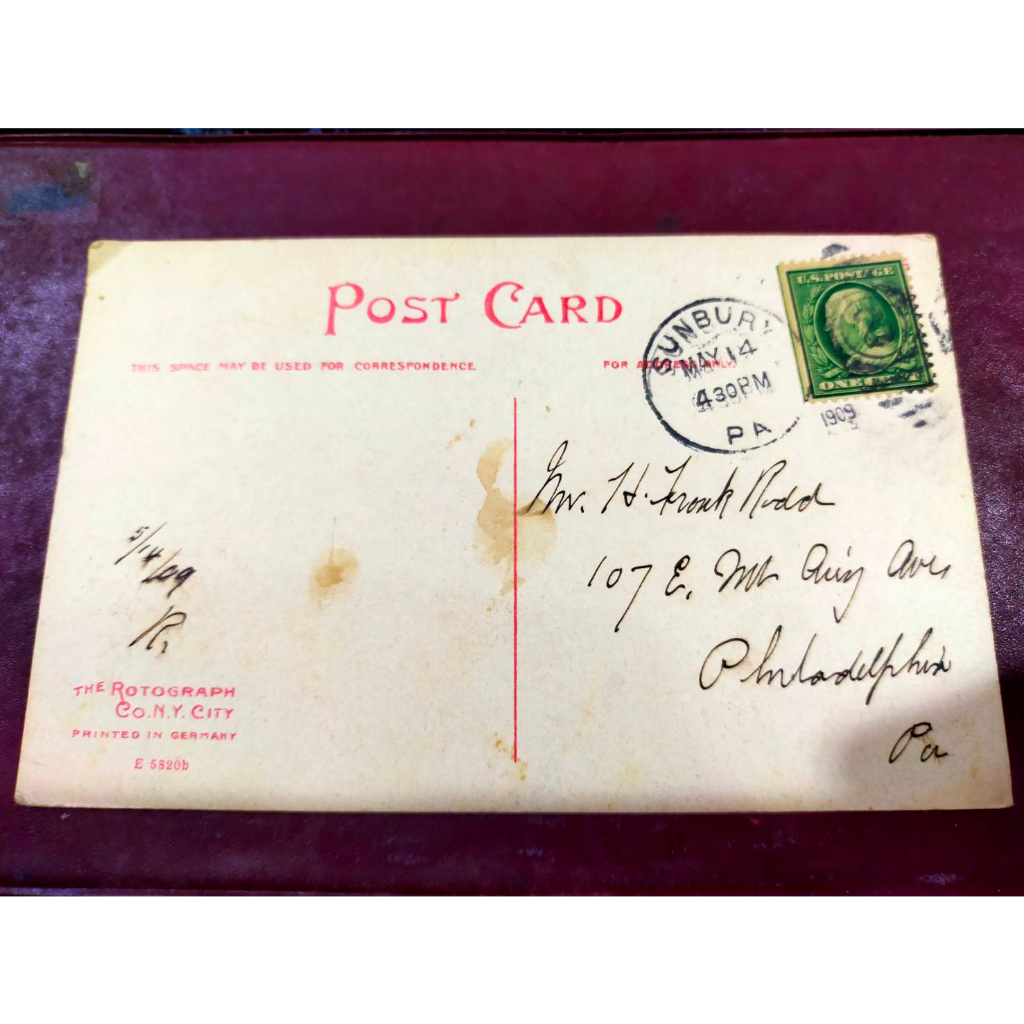 POST CARD
THIS SPACE MAY BE USED FOR CORRESPONDENCE
FOR ADDRESS ONLY
SUNBURY
MAY 14
4 30 PM
PA
1909
U.S. POSTAGE
ONE CENT
Mr. H. Frank Rodd
107 E. Mt Airy Ave
Philadelphia
Pa
5/14/09
THE ROTOGRAPH
CO. N.Y. CITY
PRINTED IN GERMANY
E 5820b